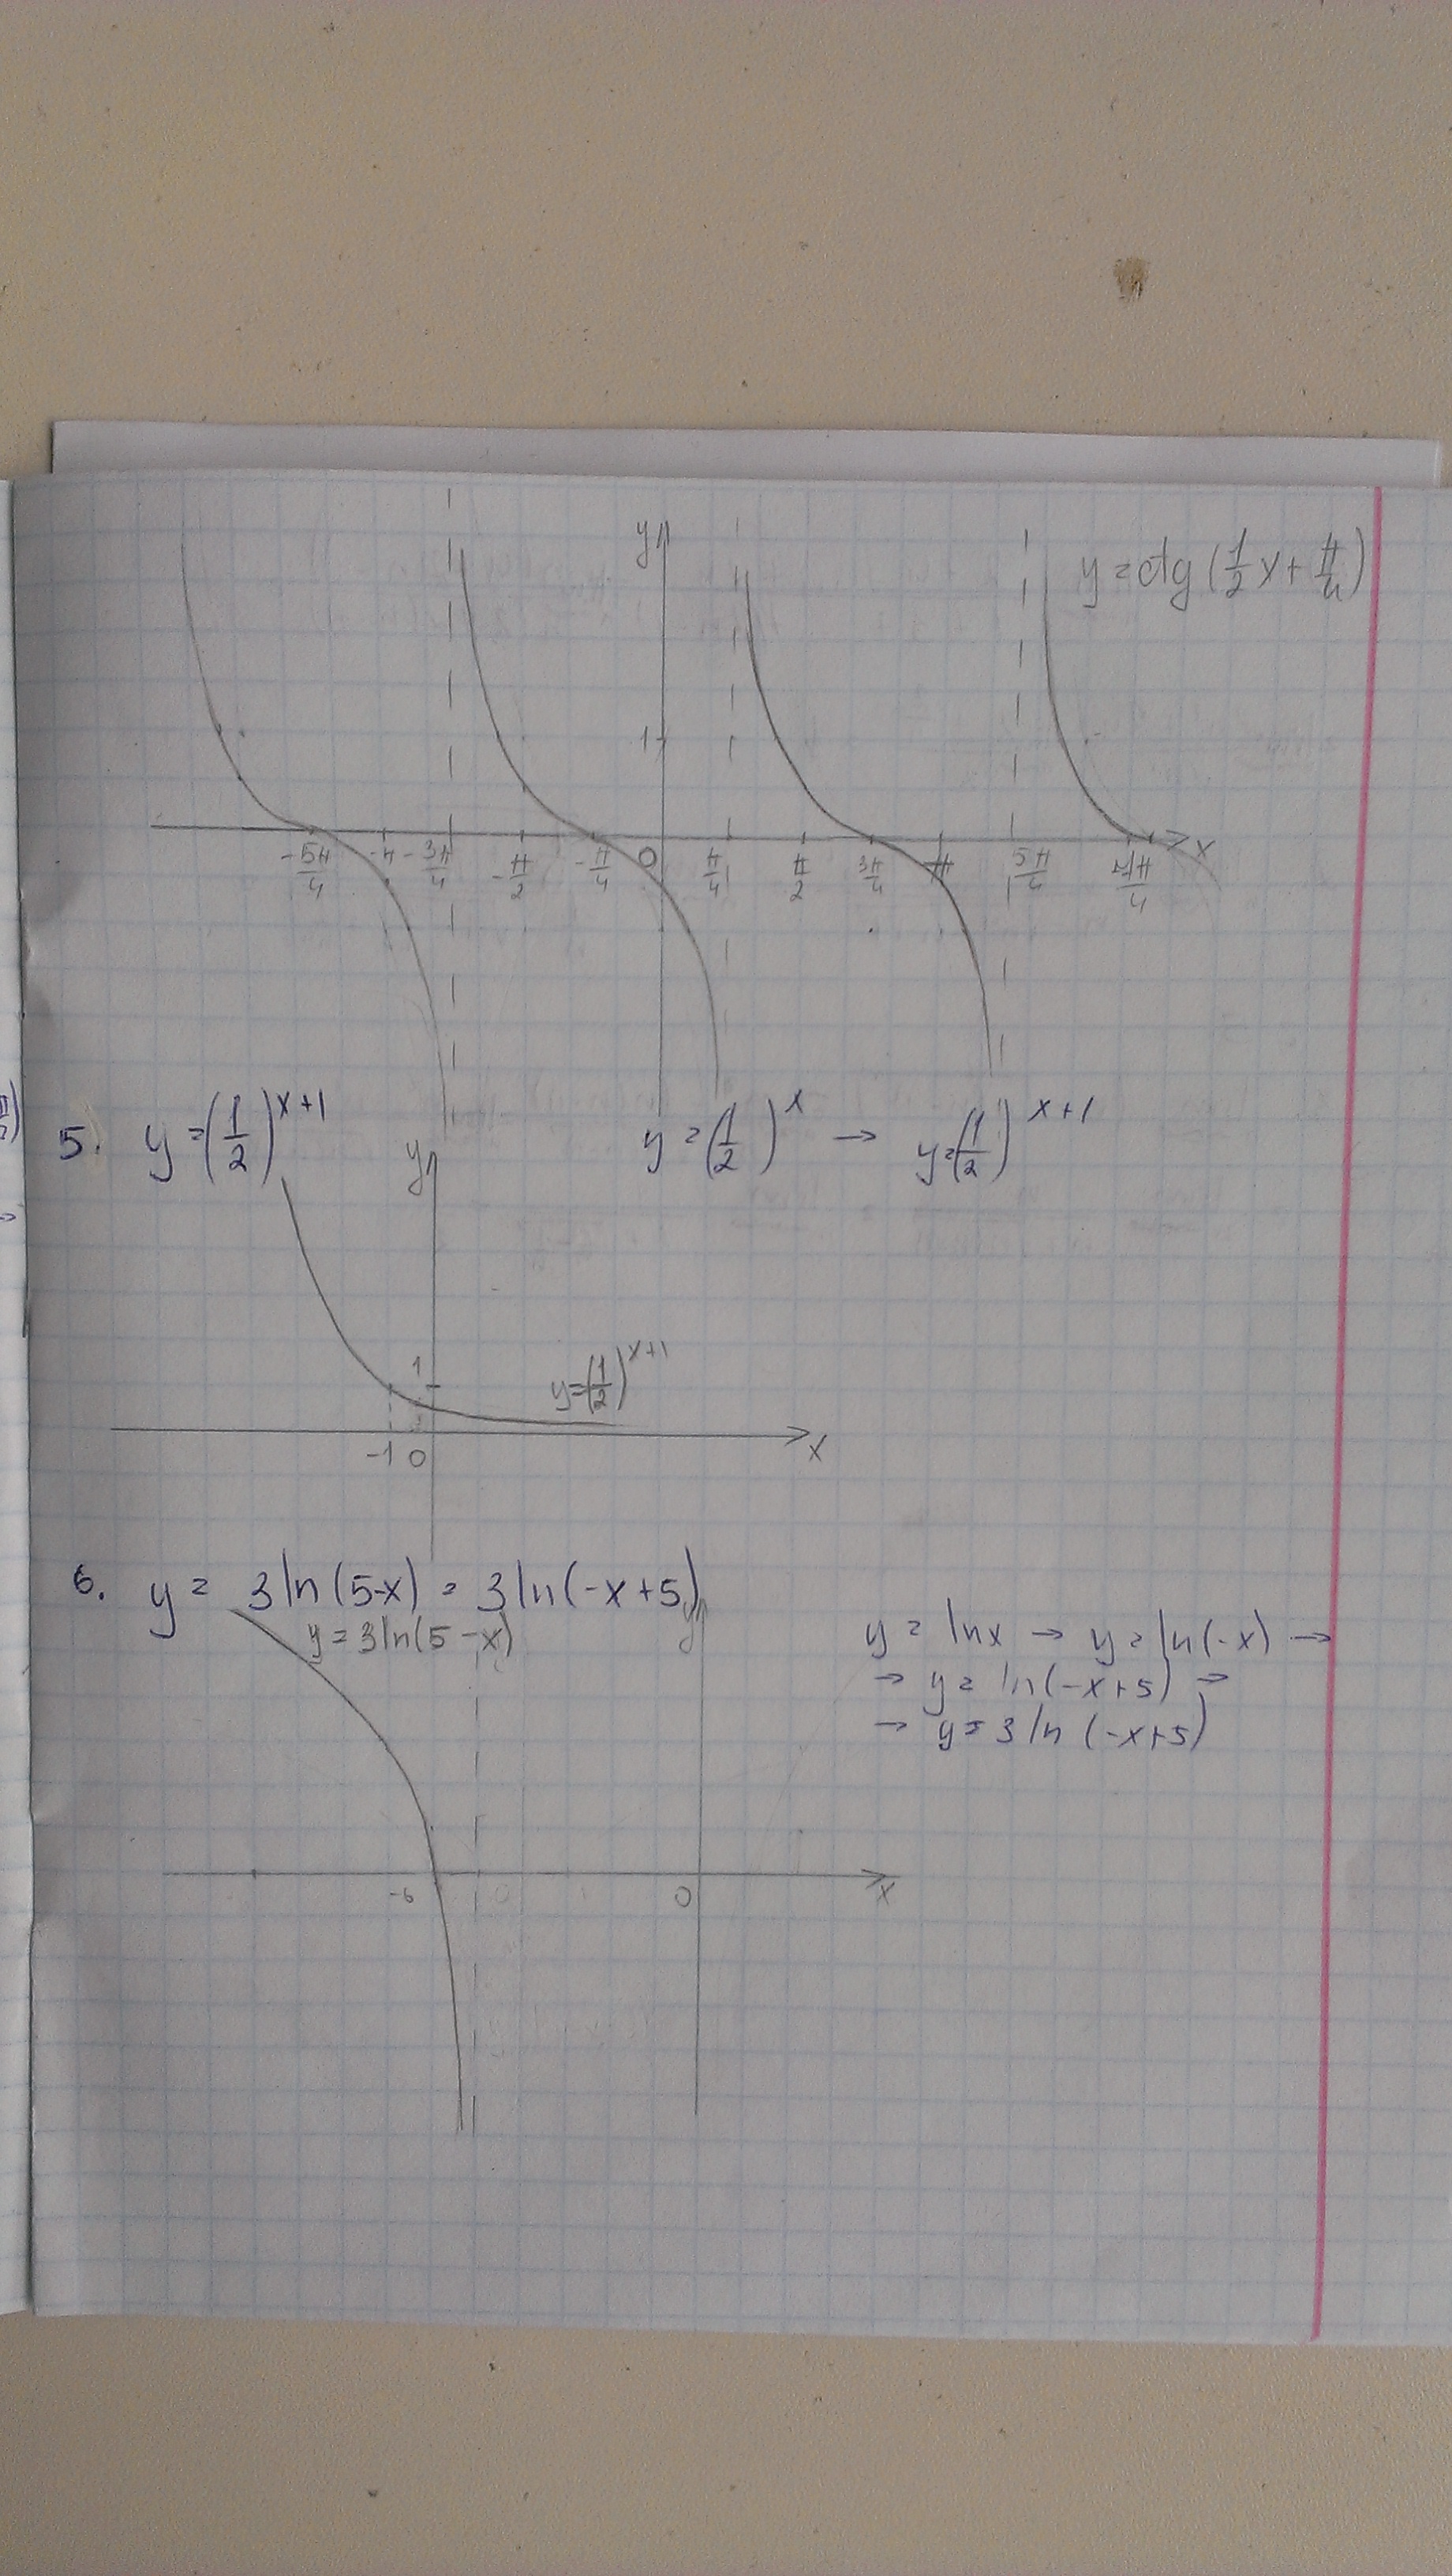 y
y = ctg(1/2 x + π/4)
1
-5π/4 -π -3π/4 -π/2 -π/4 0 π/4 π/2 3π/4 π 5π/4 7π/4 x
5. y = (1/2)^x+1 y = (1/2)^x → y = (1/2)^x+1
y
1
y = (1/2)^x+1
-1 0 x
6. y = 3ln(5-x) = 3ln(-x+5)
y = 3ln(5-x) y
y = lnx → y = ln(-x) →
→ y = ln(-x+5) →
→ y = 3ln(-x+5)
-6 0 x